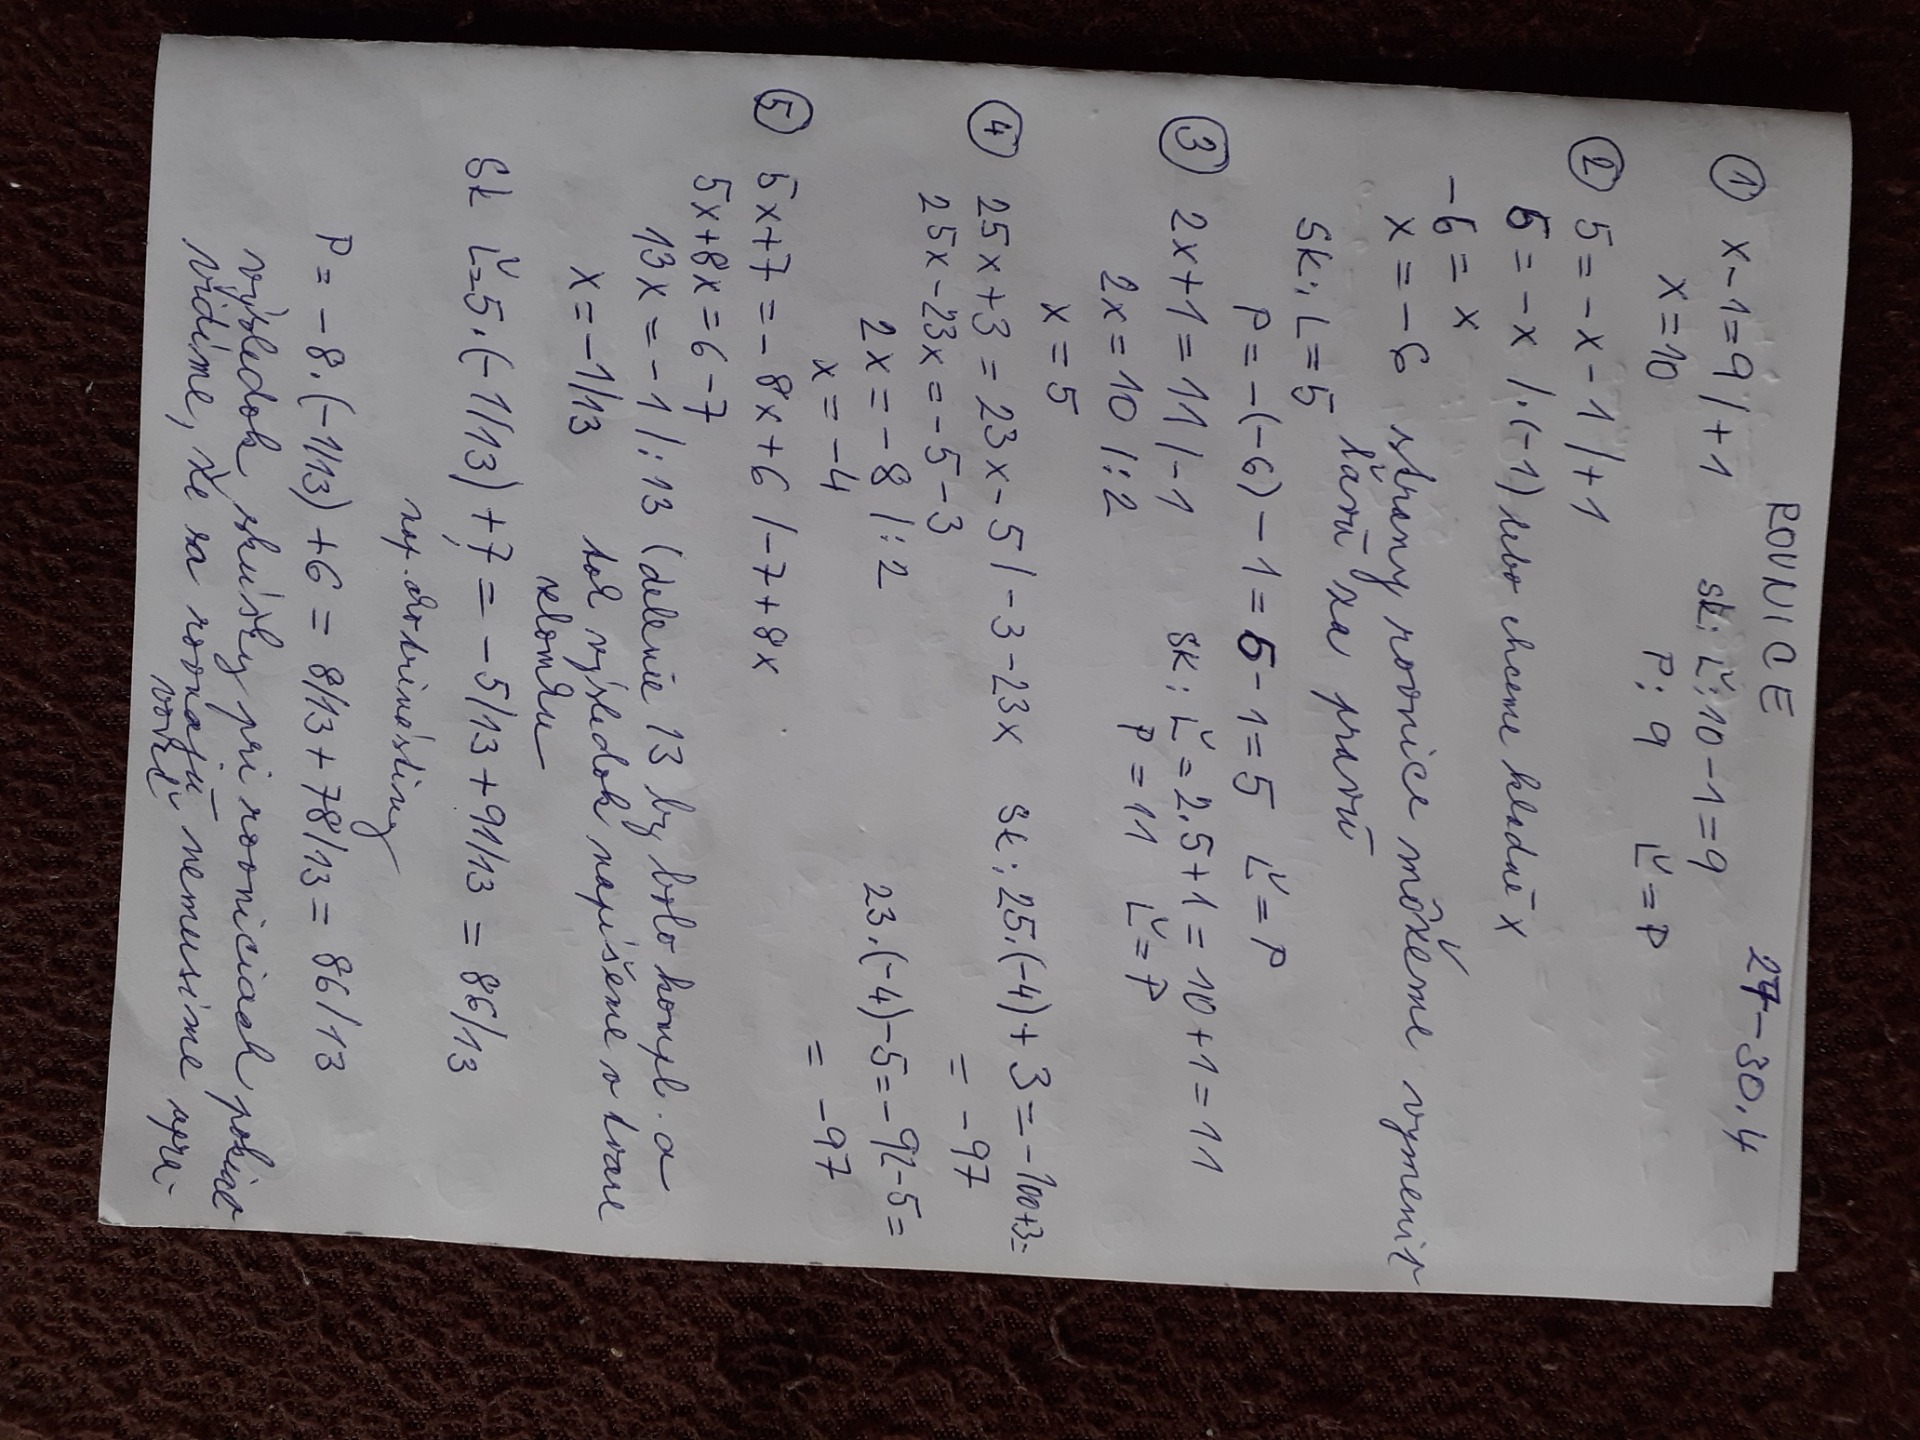 ROVNICE 27-30.4
① x-1=9/+1 sk: Ľ: 10-1=9
x=10 P: 9 Ľ=P
② 5=-x-1/+1
6=-x/.(-1) lebo chceme kladné x
-6=x
x=-6 strany rovnice môžeme vymeniť
ľavú za pravú
Sk: L=5
P=-(-6)-1=6-1=5 Ľ=P
③ 2x+1=11/-1 sk: Ľ=2.5+1=10+1=11
2x=10/:2 P=11 Ľ=P
x=5
④ 25x+3=23x-5/-3-23x sk: 25.(-4)+3=-100+3=
25x-23x=-5-3 =-97
2x=-8/:2 23.(-4)-5=-92-5=
x=-4 =-97
⑤ 5x+7=-8x+6/-7+8x
5x+8x=6-7
13x=-1/:13 (delenie 13 by bolo kompl. a
x=-1/13 výsledok napíšeme v tvare
zlomku
Sk Ľ=5.(-1/13)+7=-5/13+91/13=86/13
P=-8.(-1/13)+6=8/13+78/13=86/13
výsledok skúšky pri rovniciach pokiaľ
vidíme, že sa rovnajú nemusíme